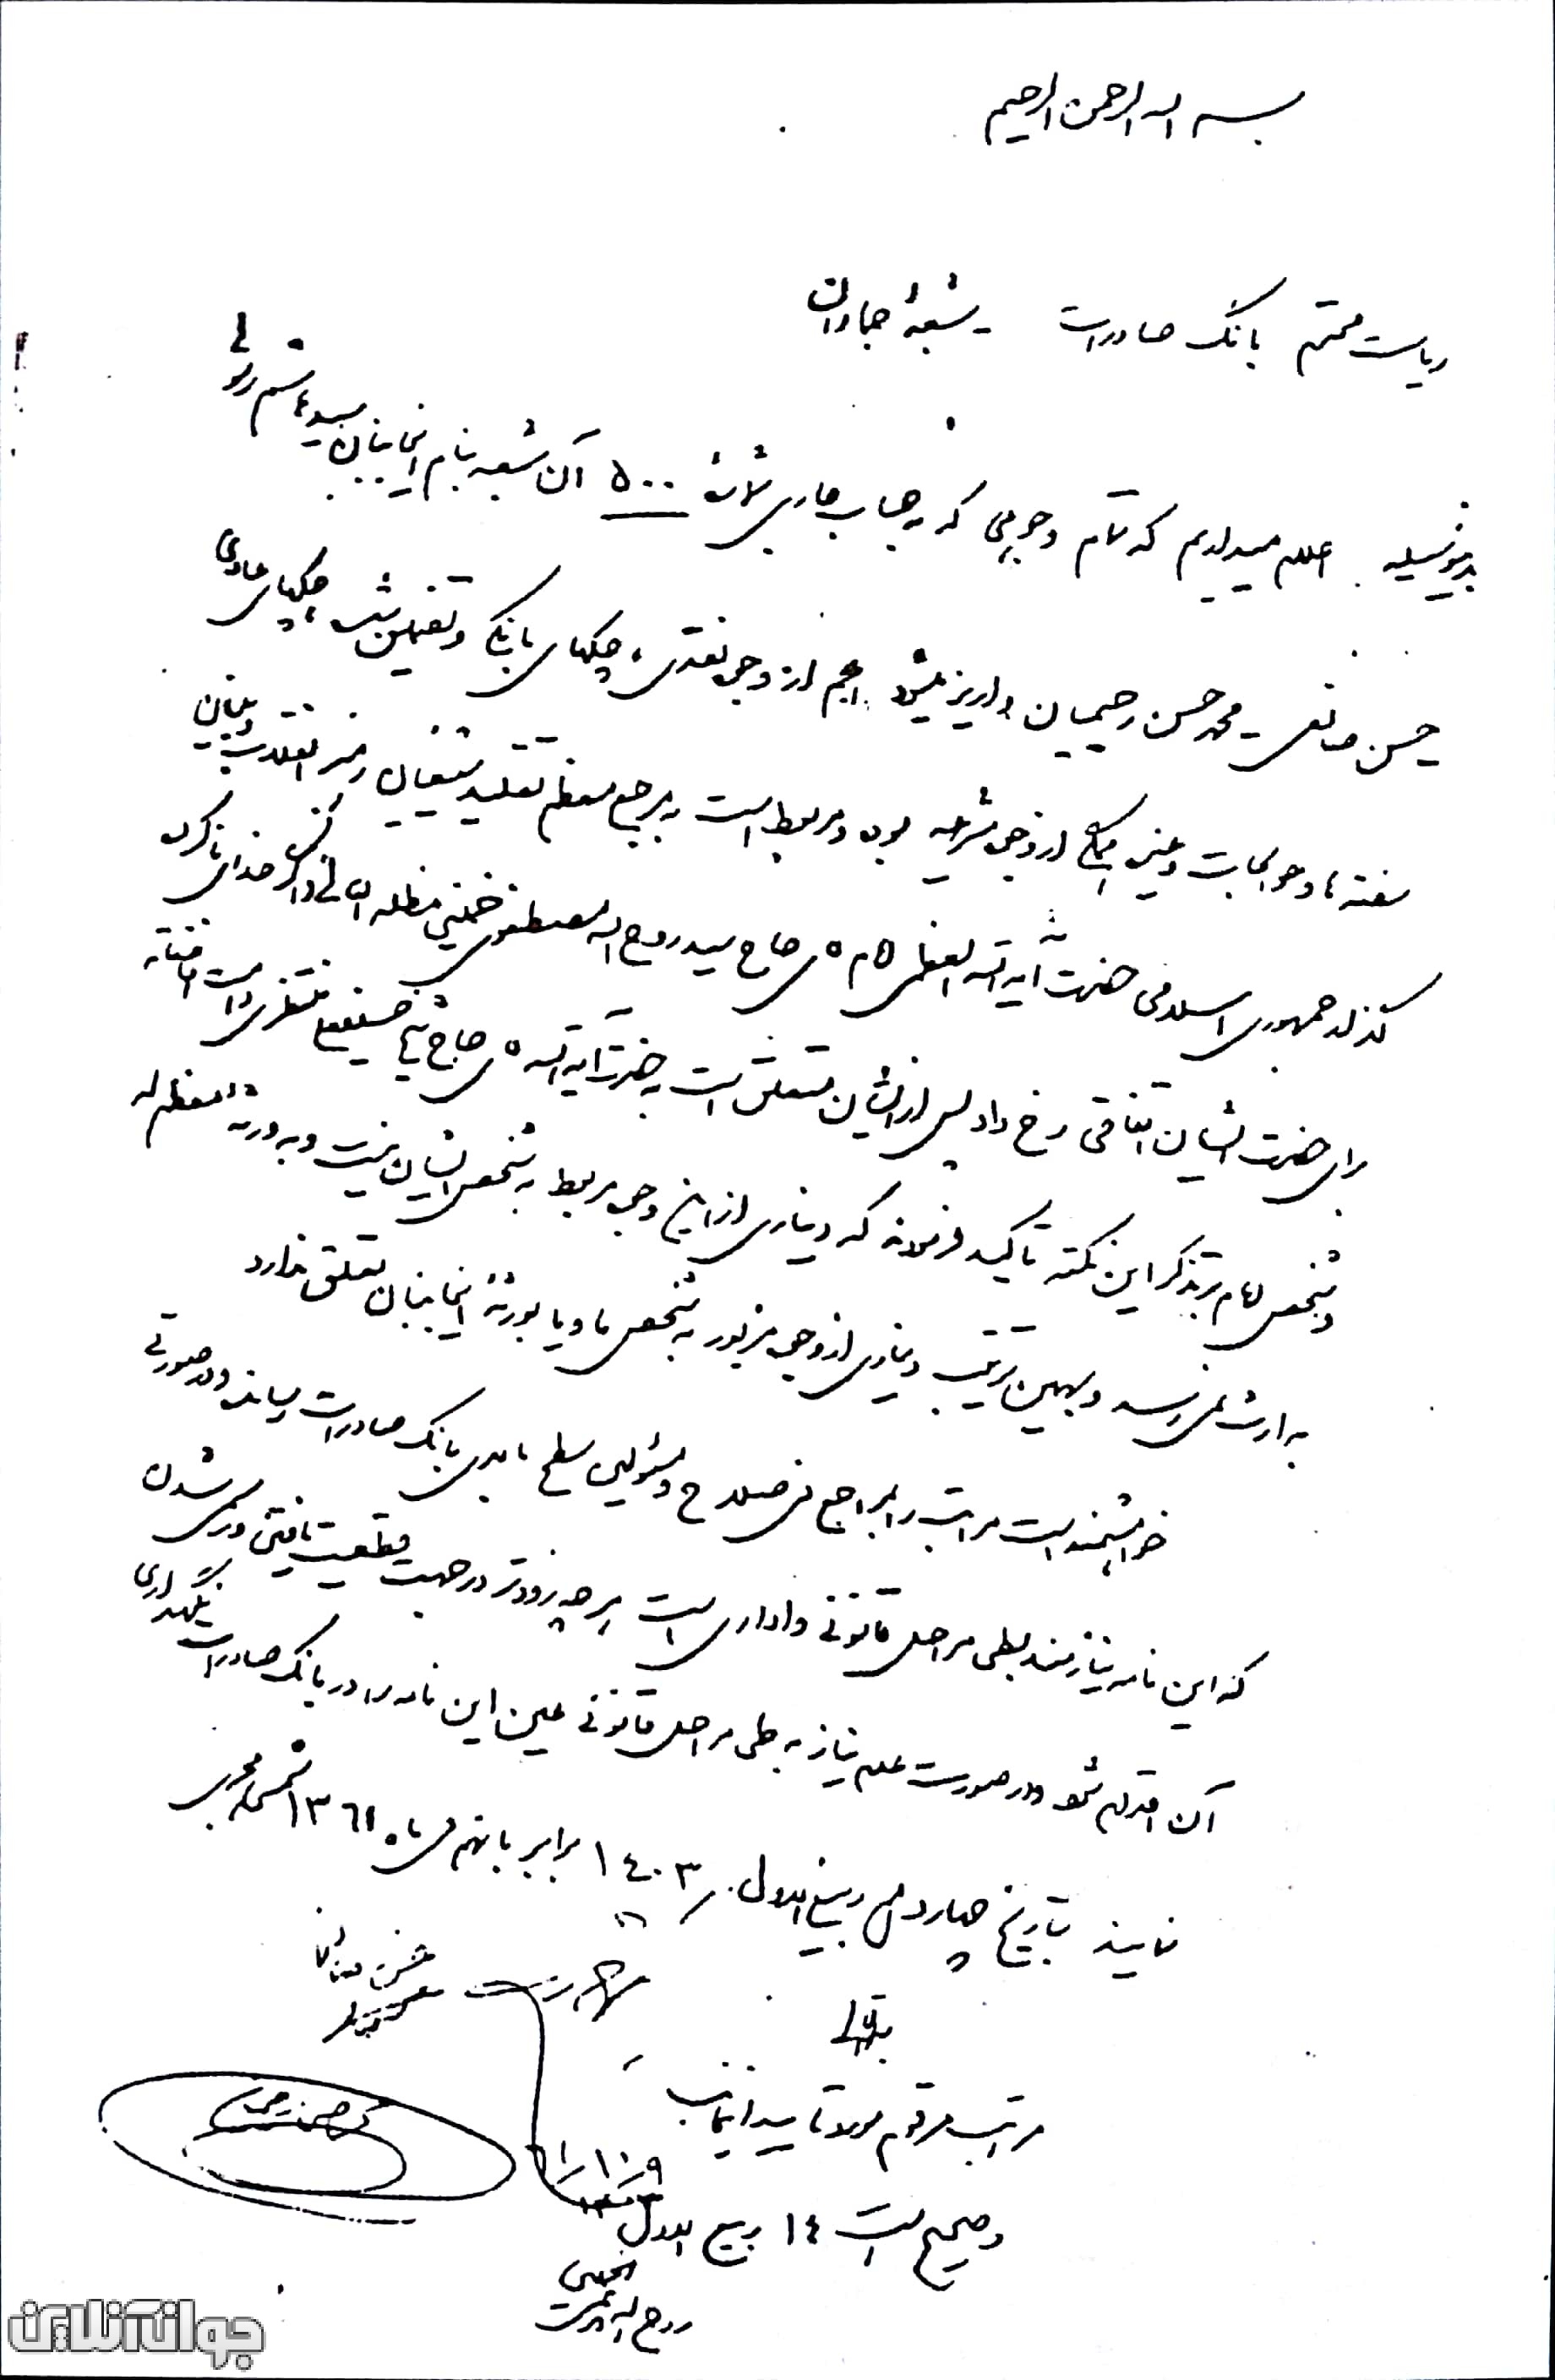 بسم الله الرحمن الرحیم
ریاست محترم بانک صادرات - شعبهٔ جماران
بدینوسیله اعلام میداریم که تمام وجوهی که بحساب جاری شماره ۵۰۰ آن شعبه بنام اینجانبان سید هاشم رسولی
حسن صانعی - محمد حسن رحیمیان واریز میشود اعم از وجوه نقدی، چکهای بانکی و تضمین شده، چکهای عادی
سفته‌ها و حوالجات و غیره کلاً از وجوه شرعیه بوده و مربوط است به مرجع معظم تقلید شیعیان رهبر انقلاب و بنیان
گذار جمهوری اسلامی حضرت آیة الله العظمی امام حاج سید روح الله مصطفوی خمینی مدظله العالی و اگر خدای ناکرده
برای حضرت ایشان اتفاقی رخ داد پس از ایشان متعلق است به حضرت آیة الله حاج شیخ حسینعلی منتظری دامت افاضاته
و شخص امام بتذکر این نکته تأکید فرموده‌اند که دیناری از این وجوه مربوط به شخص ایشان نیست و به ورثهٔ معظم له
به ارث نمی‌رسد و بهمین ترتیب دیناری از وجوه مزبور به شخص ما و یا بورثهٔ اینجانبان تعلق ندارد
خواهشمند است مراتب را بمراجع ذیصلاح و مسئولین سطح بالای بانک صادرات برسانند و در صورتی
که این نامه نیازمند بطی مراحل قانونی و اداری است هر چه زودتر در جهت قطعیت یافتن و رسمی شدن
آن اقدام شود و در صورت عدم نیاز به طی مراحل قانونی عین این نامه را در بانک صادرات نگهداری
نمایند بتاریخ چهاردهم ربیع الاول ۱۴۰۳ برابر با نهم دی ماه ۱۳۶۱ شمسی هجری
حسن صانعی
مراتب مرقوم مورد تأیید اینجانب
و صحیح است ۱۴ ربیع الاول
روح الله الموسوی الخمینی
جوان‌آنلاین